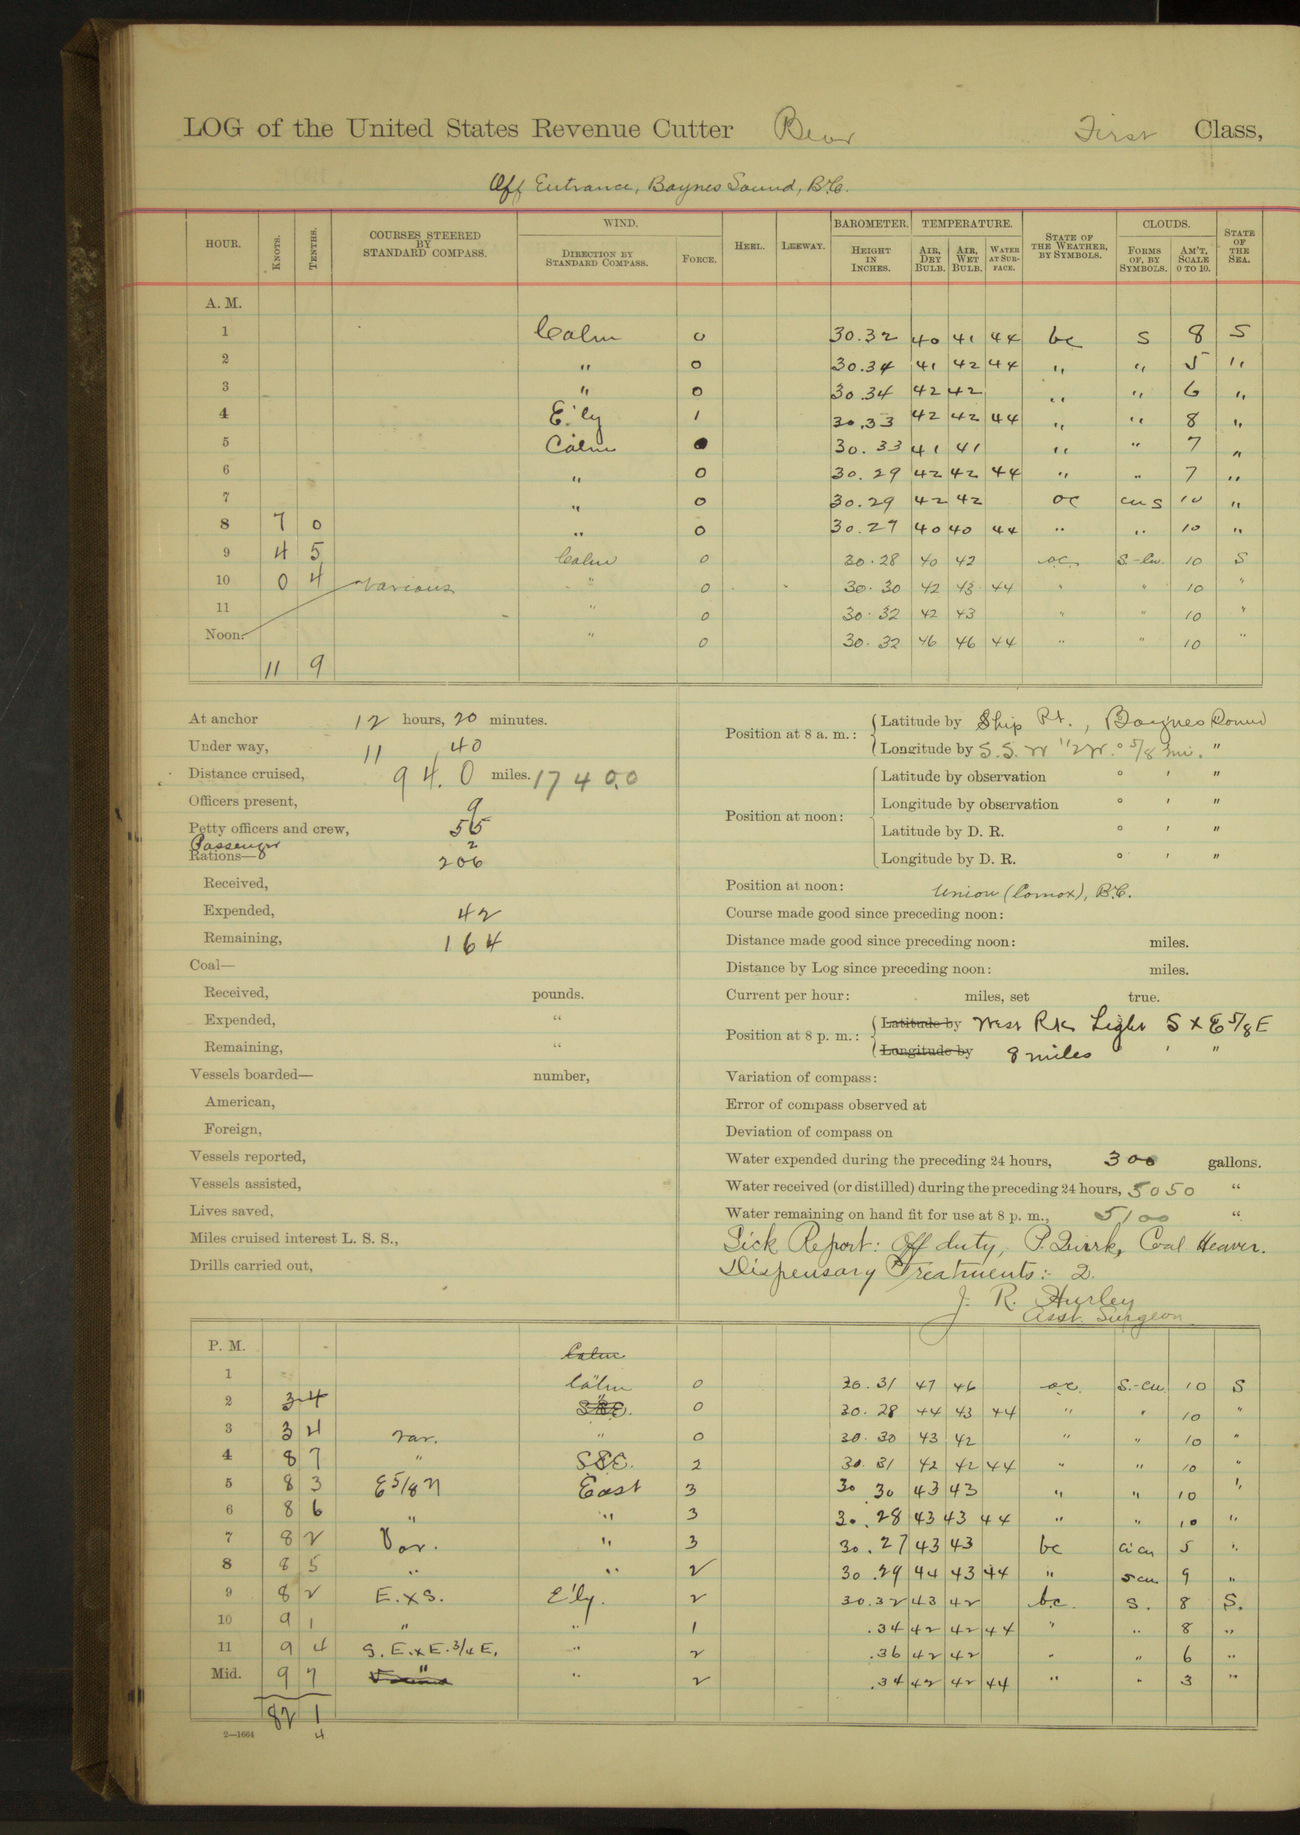 LOG of the United States Revenue Cutter Bear First Class,
Off Entrance, Baynes Sound, B.C.
HOUR. KNOTS. TENTHS. COURSES STEERED BY STANDARD COMPASS. WIND. DIRECTION BY STANDARD COMPASS. FORCE. HEEL. LEEWAY. BAROMETER. HEIGHT IN INCHES. TEMPERATURE. AIR, DRY BULB. AIR, WET BULB. WATER AT SURFACE. STATE OF THE WEATHER, BY SYMBOLS. CLOUDS. FORMS OF, BY SYMBOLS. AM'T, SCALE 0 TO 10. STATE OF THE SEA.
A. M.
1 Calm 0 30.32 40 41 44 bc S 8 S
2 " 0 30.34 41 42 44 " " 5 "
3 " 0 30.34 42 42 " " 6 "
4 E'ly 1 30.33 42 42 44 " " 8 "
5 Calm 30.33 41 41 " " 7 "
6 " 0 30.29 42 42 44 " " 7 "
7 " 0 30.29 42 42 oc cu s 10 "
8 7 0 " 0 30.27 40 40 44 " " 10 "
9 4 5 Calm 0 30.28 40 42 oc S.-cu. 10 S
10 0 4 various " 0 30.30 42 43 44 " " 10 "
11 " 0 30.32 42 43 " " 10 "
Noon. " 0 30.32 46 46 44 " " 10 "
11 9
At anchor 12 hours, 20 minutes.
Under way, 11 , 40
Distance cruised, 94.0 miles. 1740.0
Officers present, 9
Petty officers and crew, 55
Passenger 2
Rations— 206
Received,
Expended, 42
Remaining, 164
Coal—
Received, pounds.
Expended, "
Remaining, "
Vessels boarded— number,
American,
Foreign,
Vessels reported,
Vessels assisted,
Lives saved,
Miles cruised interest L. S. S.,
Drills carried out,
Position at 8 a. m.: Latitude by Ship Pt., Baynes Sound
Longitude by S. S. W 1/2 W. ° 5/8 mi. "
Position at noon: Latitude by observation ° ' "
Longitude by observation ° ' "
Latitude by D. R. ° ' "
Longitude by D. R. ° ' "
Position at noon: Union (Comox), B.C.
Course made good since preceding noon:
Distance made good since preceding noon: miles.
Distance by Log since preceding noon: miles.
Current per hour: miles, set true.
Position at 8 p. m.: Latitude by West Rk Light S x E 5/8 E
Longitude by 8 miles ' "
Variation of compass:
Error of compass observed at
Deviation of compass on
Water expended during the preceding 24 hours, 300 gallons.
Water received (or distilled) during the preceding 24 hours, 5050 "
Water remaining on hand fit for use at 8 p. m., 5100 "
Sick Report: Off duty, P. Quirk, Coal Heaver.
Dispensary Treatments:- 2.
J. R. Hurley
Asst. Surgeon
P. M. Calm
1 Calm 0 30.31 47 46 oc. S.-cu 10 S
2 3 4 " 0 30.28 44 43 44 " " 10 "
3 3 4 var. " 0 30.30 43 42 " " 10 "
4 8 7 " SSE. 2 30.31 42 42 44 " " 10 "
5 8 3 E 5/8 N East 3 30.30 43 43 " " 10 "
6 8 6 " " 3 30.28 43 43 44 " " 10 "
7 8 2 Var. " 3 30.27 43 43 bc ci cu 5 "
8 8 5 " " 2 30.29 44 43 44 " s cu 9 "
9 8 2 E. x S. E'ly. 2 30.32 43 42 b.c. S. 8 S.
10 9 1 " " 1 .34 42 42 44 " " 8 "
11 9 4 S. E. x E. 3/4 E. " 2 .36 42 42 " " 6 "
Mid. 9 7 " " 2 .34 42 42 44 " " 3 "
82 1
2—1664 4